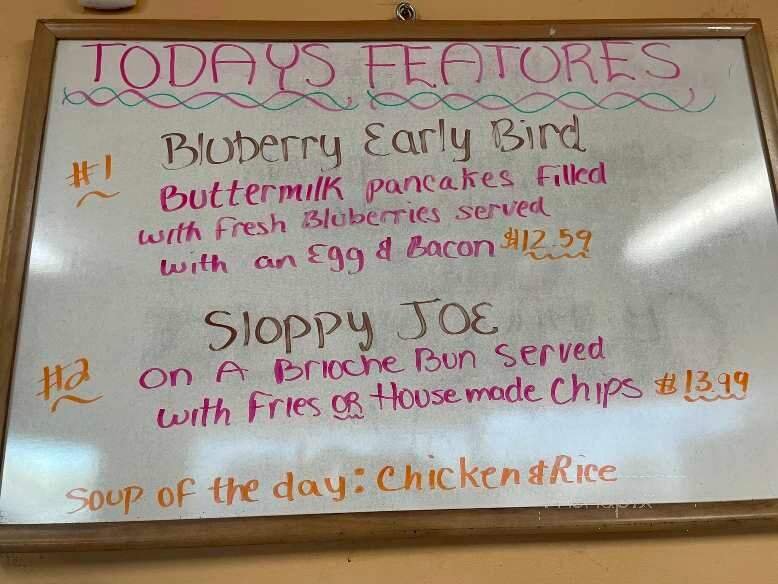 TODAYS FEATURES
#1 Bluberry Early Bird
Buttermilk pancakes Filled
with Fresh Bluberries served
with an Egg & Bacon $12.59
Sloppy JOE
#2 on A Brioche Bun served
with Fries OR Housemade Chips $13.99
Soup of the day: Chicken & Rice